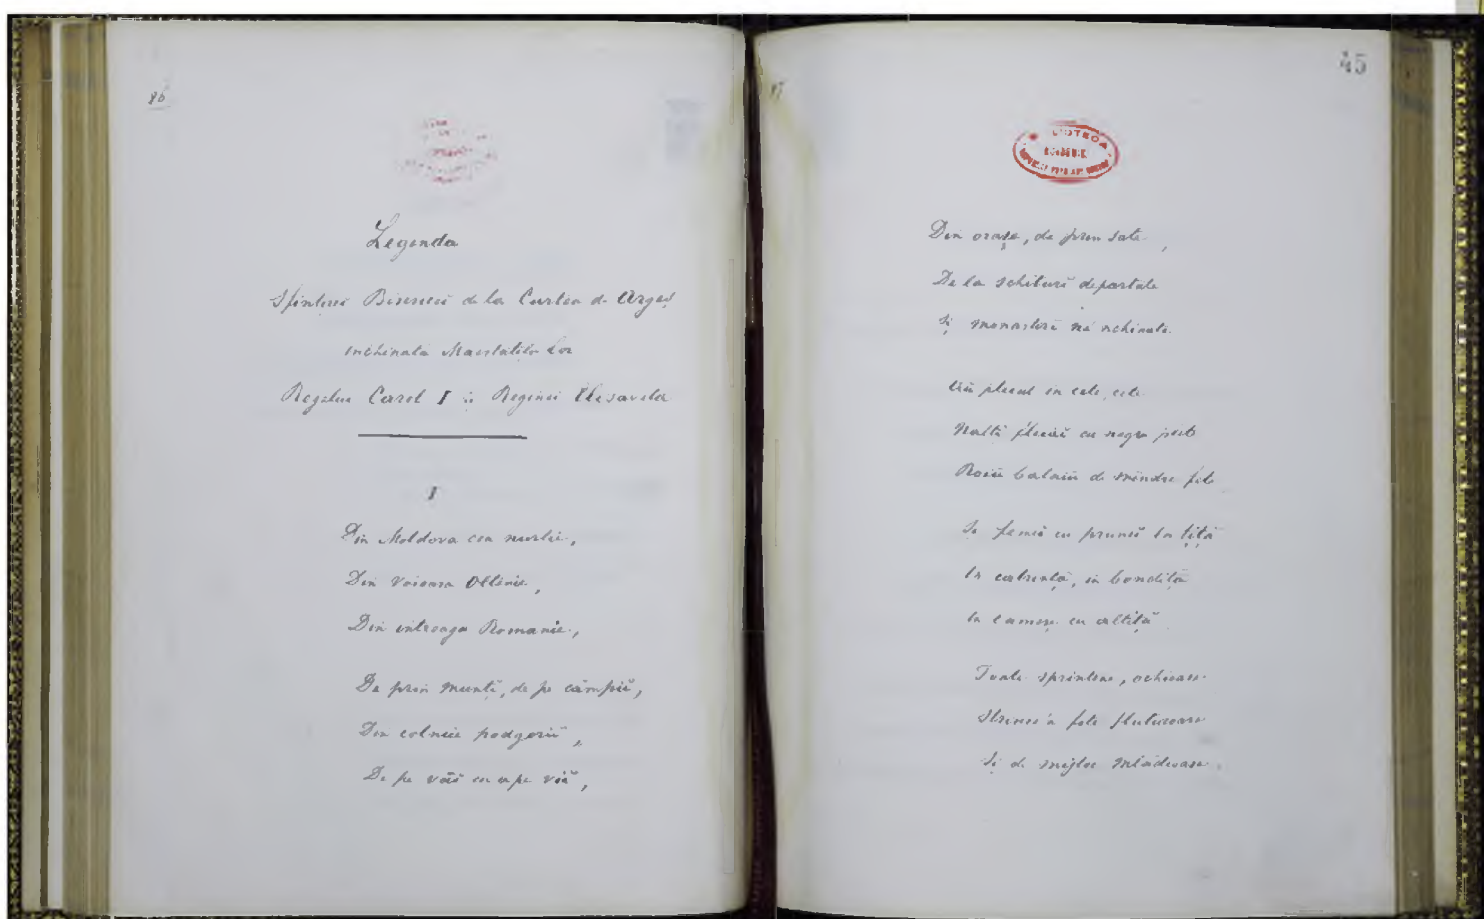 86
Legenda
Sfintei Biserici de la Curtea de Argeș
inchinată Maiestăților Lor
Regelui Carol I și Reginei Elisaveta
I
Din Moldova cea nurlie,
Din voioasa Oltenie,
Din intreaga Romanie,
De prin munți, de pe câmpiĭ,
Din colnice podgoriĭ,
De pe văĭ cu ape viĭ,
87
45
Din orașe, de prin sate,
De la schiturĭ departate
Și monastirĭ ne nchinate
Aŭ plecat in cete, cete
Naltĭ flecăĭ cu negre plete
Roiŭ balaiŭ de mîndre fete
Și femeĭ cu pruncĭ la țîță
In catrință, in bondiță
In cameșĭ cu altiță
Toate sprintene, ochioase
La fete fluturoase
Și de mijloc mlădioase